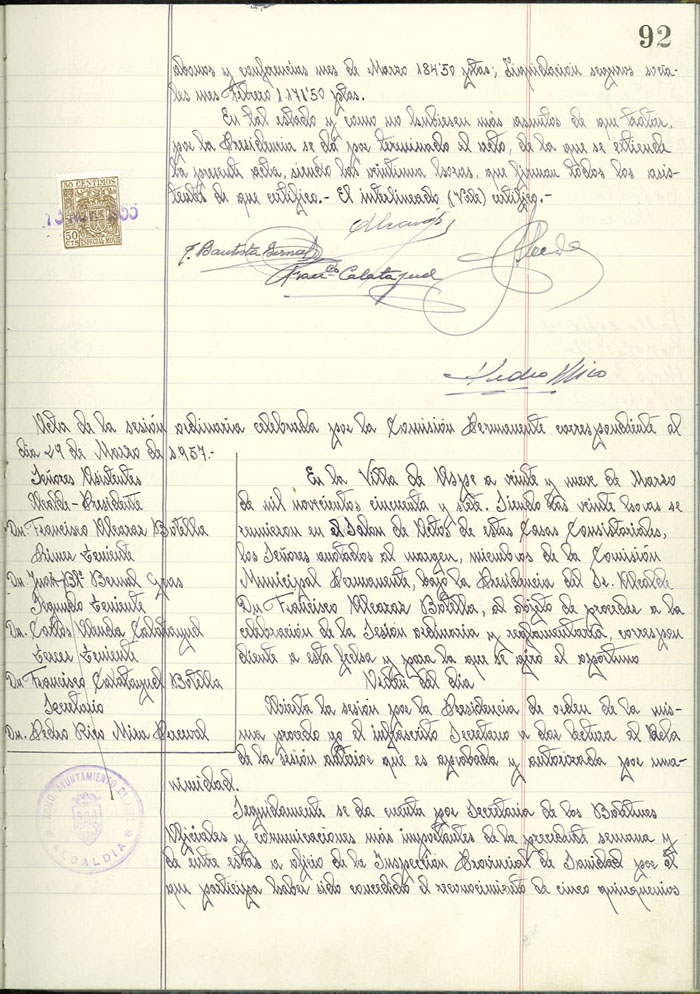 92
abonos y conferencias mes de Marzo 184'50 ptas; Liquidación seguros socia-
les mes febrero 1171'50 ptas.
En tal estado y como no hubiesen más asuntos de que tratar,
por la Presidencia se dá por terminado el acto, de la que se extiende
la presente acta, siendo las veintiuna horas, que firman todos los asis-
tentes de que certifico.- El interlineado certifico.-
50 CENTIMOS
50 CTS ESPECIAL MOVIL
J. Bautista Bernal
Franco Calatayud
Pedro Rico
Acta de la sesión ordinaria celebrada por la Comisión Permanente correspondiente al
día 29 de Marzo de 1957.-
Señores Asistentes
Alcalde-Presidente
Dn. Francisco Alcaraz Botella
Primer Teniente
Dn. Juan Btª Bernal
Segundo Teniente
Dn. Carlos Calatayud
Tercer Teniente
Dn. Francisco Calatayud Botella
Secretario
Dn. Pedro Rico Mira Perceval
En la Villa de Aspe a veinte y nueve de Marzo
de mil novecientos cincuenta y siete. Siendo las veinte horas se
reunieron en el Salon de Actos de estas Casas Consistoriales,
los Señores anotados al margen, miembros de la Comisión
Municipal Permanente, bajo la Presidencia del Sr. Alcalde
Dn. Francisco Alcaraz Botella, al objeto de proceder a la
celebración de la Sesión ordinaria y reglamentaria, correspon
diente a esta fecha y para la que se giró el oportuno
Orden del día
Abierta la sesión por la Presidencia de orden de la mis-
ma procedo yo el infrascrito Secretario a dar lectura al Acta
de la sesión anterior que es aprobada y autorizada por una-
nimidad.
Seguidamente se da cuenta por Secretaria de los Boletines
Oficiales y comunicaciones más importantes de la precedente semana y
de entre estas a oficio de la Inspección Provincial de Sanidad por el
que participa haber sido concedido el reconocimiento de cinco quinquenios
AYUNTAMIENTO DE ASPE
ALCALDIA